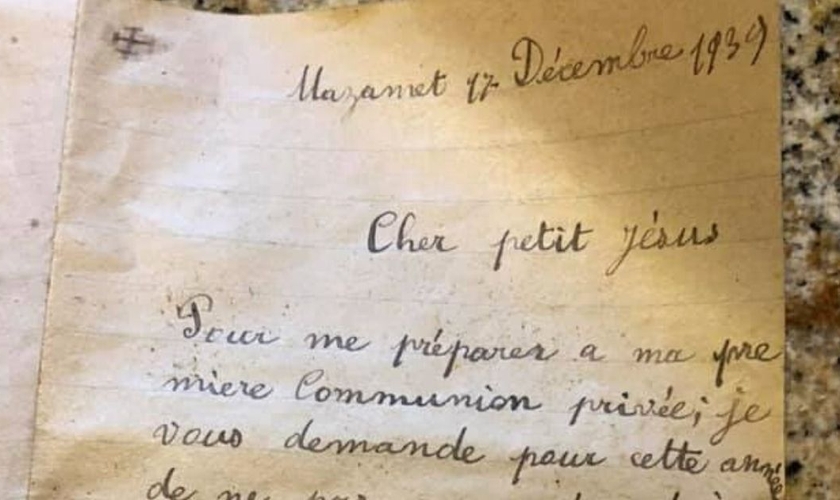 Mazamet 17 Décembre 1939
Cher petit Jésus
Pour me préparer a ma pre
miere Communion privée; je
vous demande pour cette année
de ne